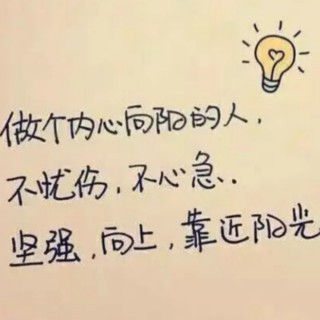 做个内心向阳的人,
不忧伤,不心急.
坚强,向上,靠近阳光